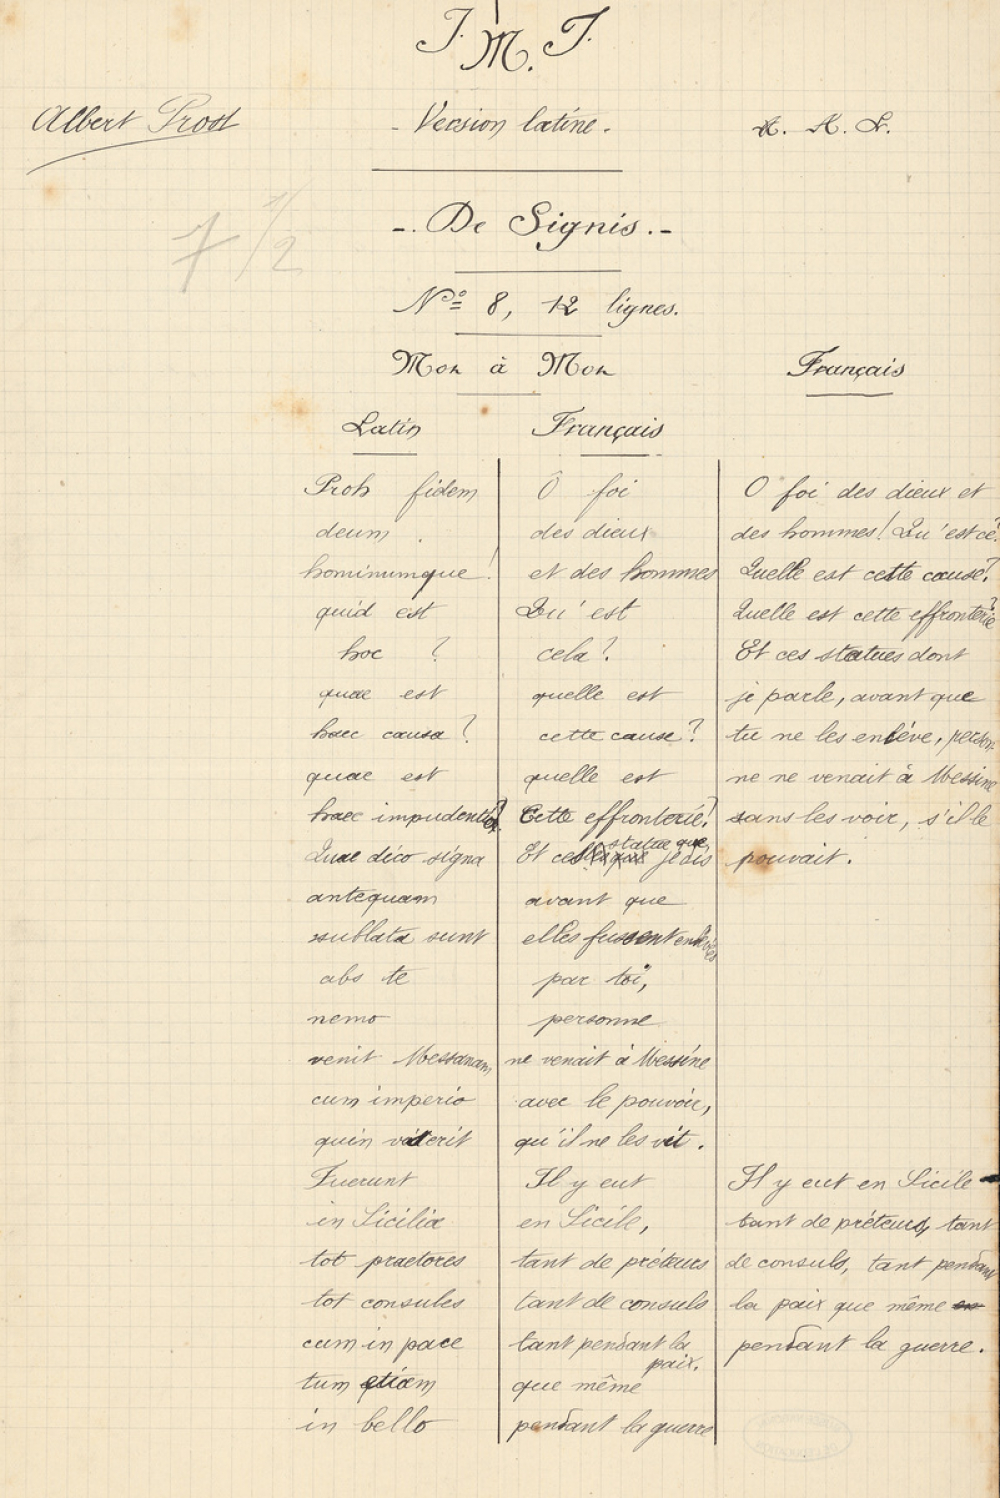 J. M. J.
Albert Prost - Version latine. A. K. L.
7 1/2
-. De Signis. -
Nº 8, 12 lignes.
Mot à Mot Français
Latin Français
Proh fidem Ô foi O foi des dieux et
deum. des dieux des hommes! Qu'est ce?
hominumque! et des hommes Quelle est cette cause?
quid est Qu'est Quelle est cette effronterie?
hoc ? cela ? Et ces statues dont
quae est quelle est je parle, avant que
haec causa? cette cause? tu ne les enlève, person-
quae est quelle est ne ne venait à Messine
haec impudentia? Cette effronterie? sans les voir, s'il le
statue que
Quae dico signa Et ces je dis pouvait.
antequam avant que
sublata sunt elles fussent enlevées
abs te par toi,
nemo personne
venit Messanam ne venait à Messine
cum imperio avec le pouvoir,
quin viderit qu'il ne les vit.
Fuerunt Il y eut Il y eut en Sicile
in Sicilia en Sicile, tant de préteurs, tant
tot praetores tant de préteurs de consuls, tant pendant
tot consules tant de consuls la paix que même en
cum in pace tant pendant la pendant la guerre.
paix.
tum etiam que même
in bello pendant la guerre